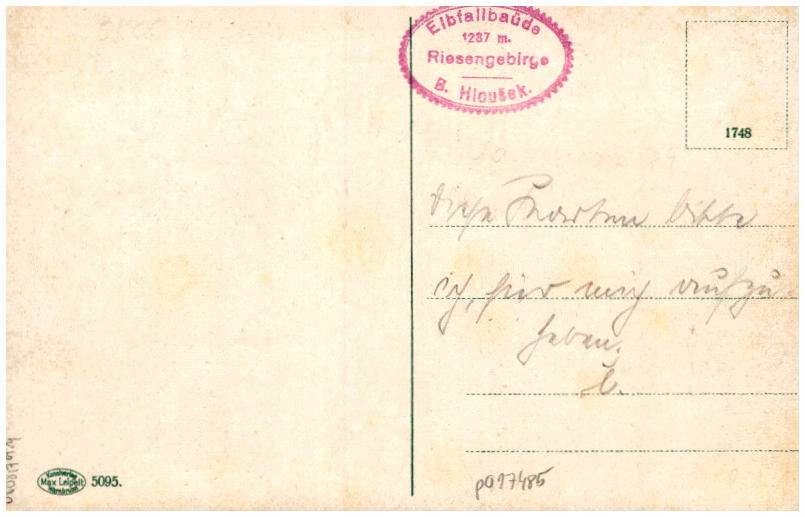 Elbfallbaude
1287 m.
Riesengebirge
B. Hloušek.
1748
Diese Karten bitte
ich, für mich aufzu-
heben.
Kunstverlag
Max Leipelt
Warmbrunn
5095.
pq17485